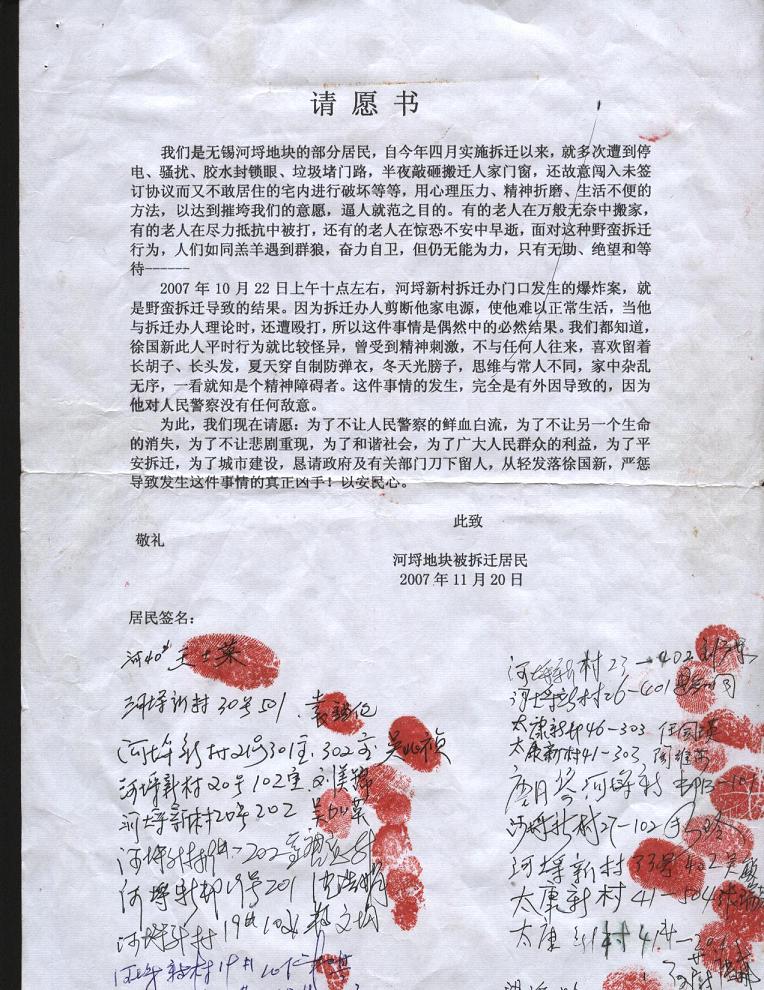 请愿书
我们是无锡河埒地块的部分居民，自今年四月实施拆迁以来，就多次遭到停
电、骚扰、胶水封锁眼、垃圾堵门路，半夜敲砸搬迁人家门窗，还故意闯入未签
订协议而又不敢居住的宅内进行破坏等等，用心理压力、精神折磨、生活不便的
方法，以达到摧垮我们的意愿，逼人就范之目的。有的老人在万般无奈中搬家，
有的老人在尽力抵抗中被打，还有的老人在惊恐不安中早逝，面对这种野蛮拆迁
行为，人们如同羔羊遇到群狼，奋力自卫，但仍无能为力，只有无助、绝望和等
待------
2007 年 10 月 22 日上午十点左右，河埒新村拆迁办门口发生的爆炸案，就
是野蛮拆迁导致的结果。因为拆迁办人剪断他家电源，使他难以正常生活，当他
与拆迁办人理论时，还遭殴打，所以这件事情是偶然中的必然结果。我们都知道，
徐国新此人平时行为就比较怪异，曾受到精神刺激，不与任何人往来，喜欢留着
长胡子、长头发，夏天穿自制防弹衣，冬天光膀子，思维与常人不同，家中杂乱
无序，一看就知是个精神障碍者。这件事情的发生，完全是有外因导致的，因为
他对人民警察没有任何敌意。
为此，我们现在请愿：为了不让人民警察的鲜血白流，为了不让另一个生命
的消失，为了不让悲剧重现，为了和谐社会，为了广大人民群众的利益，为了平
安拆迁，为了城市建设，恳请政府及有关部门刀下留人，从轻发落徐国新，严惩
导致发生这件事情的真正凶手！以安民心。
此致
敬礼
河埒地块被拆迁居民
2007 年 11 月 20 日
居民签名：
河埒新村 30号501
河埒新村21号301室.302室
河埒新村20号102室
河埒新村20号202
河埒新村19号201
河埒新村23-402
河埒新村26-401
太康新村46-303
太康新村41-303
河埒新村27-102
河埒新村 33号402
太康新村 41-504
太康新村41